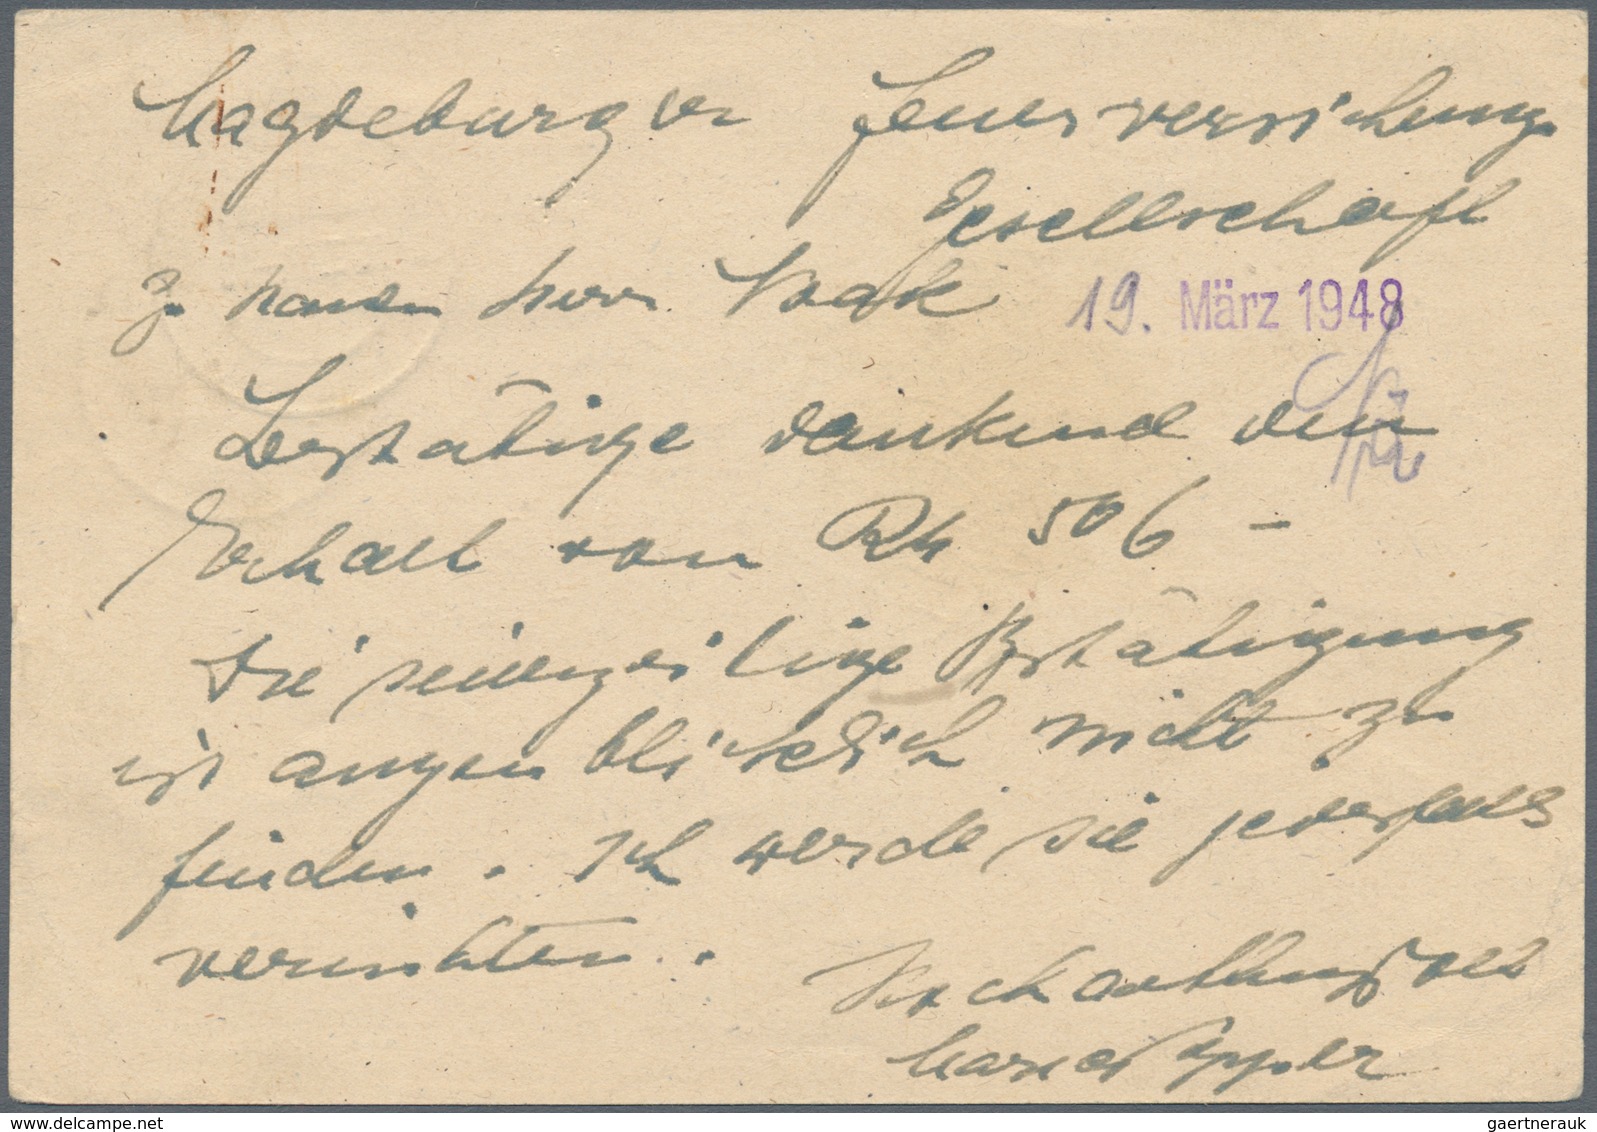 Magdeburger Feuerversicherungs
Gesellschaft
zu Handen Herrn Noak 19. März 1948
Bestätige dankend den
Erhalt von RM 506 –
Die seinerzeitige Bestätigung
ist augenblicklich nicht zu
finden. Ich werde sie jedenfalls
vernichten.
Hochachtungsvoll
Maria
gaertnerauk @ delcampe.net